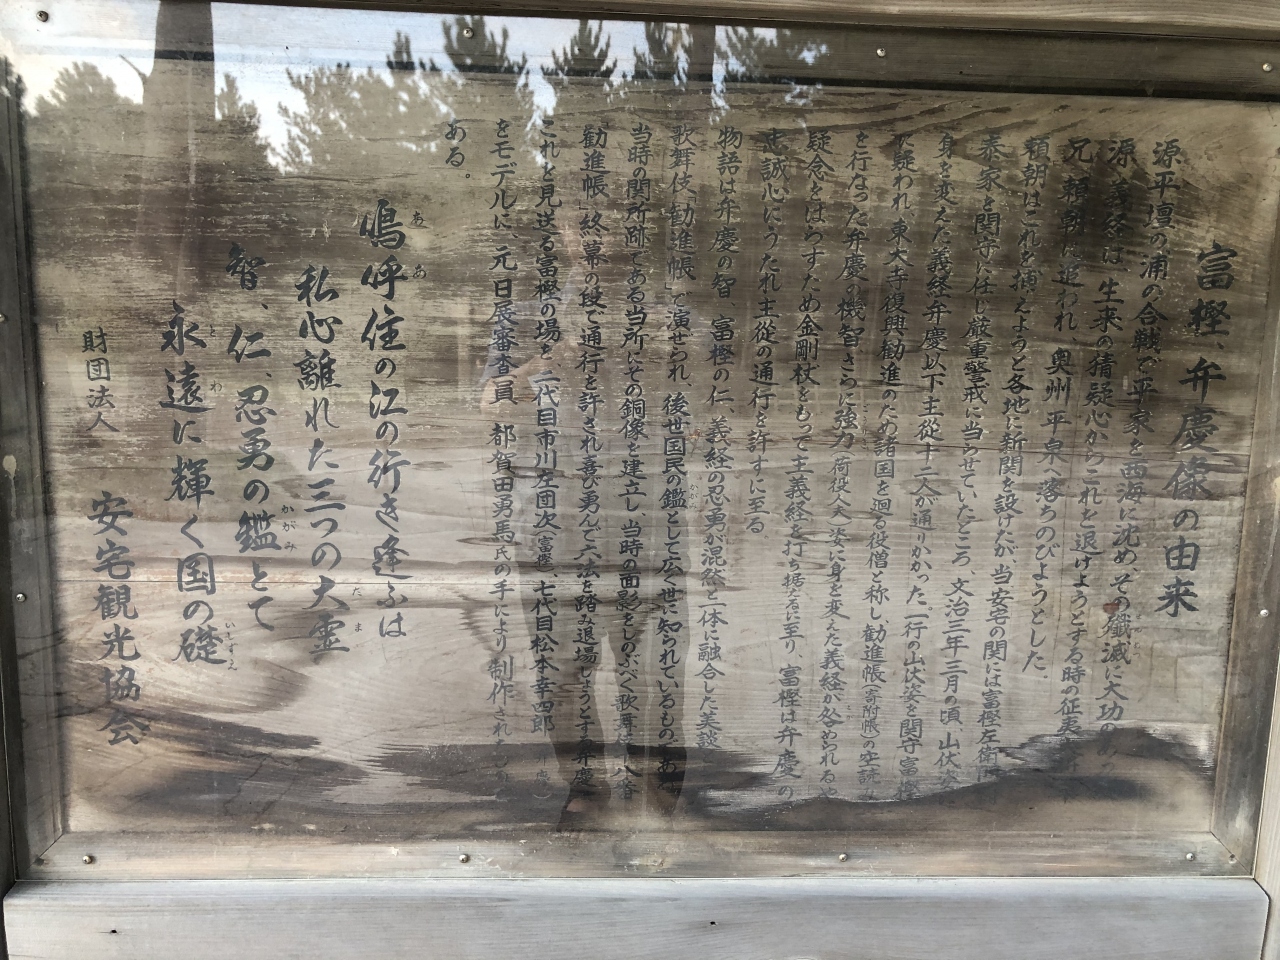 富樫、弁慶像の由来
源平壇の浦の合戦で平家を西海に沈め、その殲滅に大功の
源義経は、生来の猜疑心からこれを退けようとする時の征夷
兄頼朝に追われ、奥州平泉へ落ちのびようとした。
頼朝はこれを捕えようと各地に新関を設けたが、当安宅の関には富樫左衛門
泰家を関守に任じ厳重警戒に当らせていたところ、文治三年三月の頃、山伏姿
身を変えた義経弁慶以下主従十二人が通りかかった。一行の山伏姿を関守富樫
疑われ、東大寺復興勧進のため諸国を廻る役僧と称し、勧進帳(寄附帳)の空読み
を行なった弁慶の機智、さらに強力(荷役人夫)姿に身を変えた義経が咎められるや
疑念をはらすため金剛杖をもって主義経を打ち据えるに至り、富樫は弁慶の
忠誠心にうたれ主従の通行を許すに至る
物語は弁慶の智、富樫の仁、義経の忍勇が混然と一体に融合した美談
歌舞伎「勧進帳」で演ぜられ、後世国民の鑑として広く世に知られているものである
かがみ
当時の関所跡である当所にその銅像を建立し、当時の面影をしのぶべく歌舞伎十八番
勧進帳」終幕の段で通行を許され喜び勇んで六法を踏み退場しようとす弁慶
これを見送る富樫の場を、二代目市川左団次(富樫)、七代目松本幸四郎
をモデルに、元日展審査員 都賀田勇馬氏の手により制作された
ある。
嗚呼住の江の行き逢ふは
あ あ
私心離れた三つの大霊
たま
智、仁、忍勇の鑑とて
かがみ
永遠に輝く国の礎
とわ いしずえ
財団法人 安宅観光協会